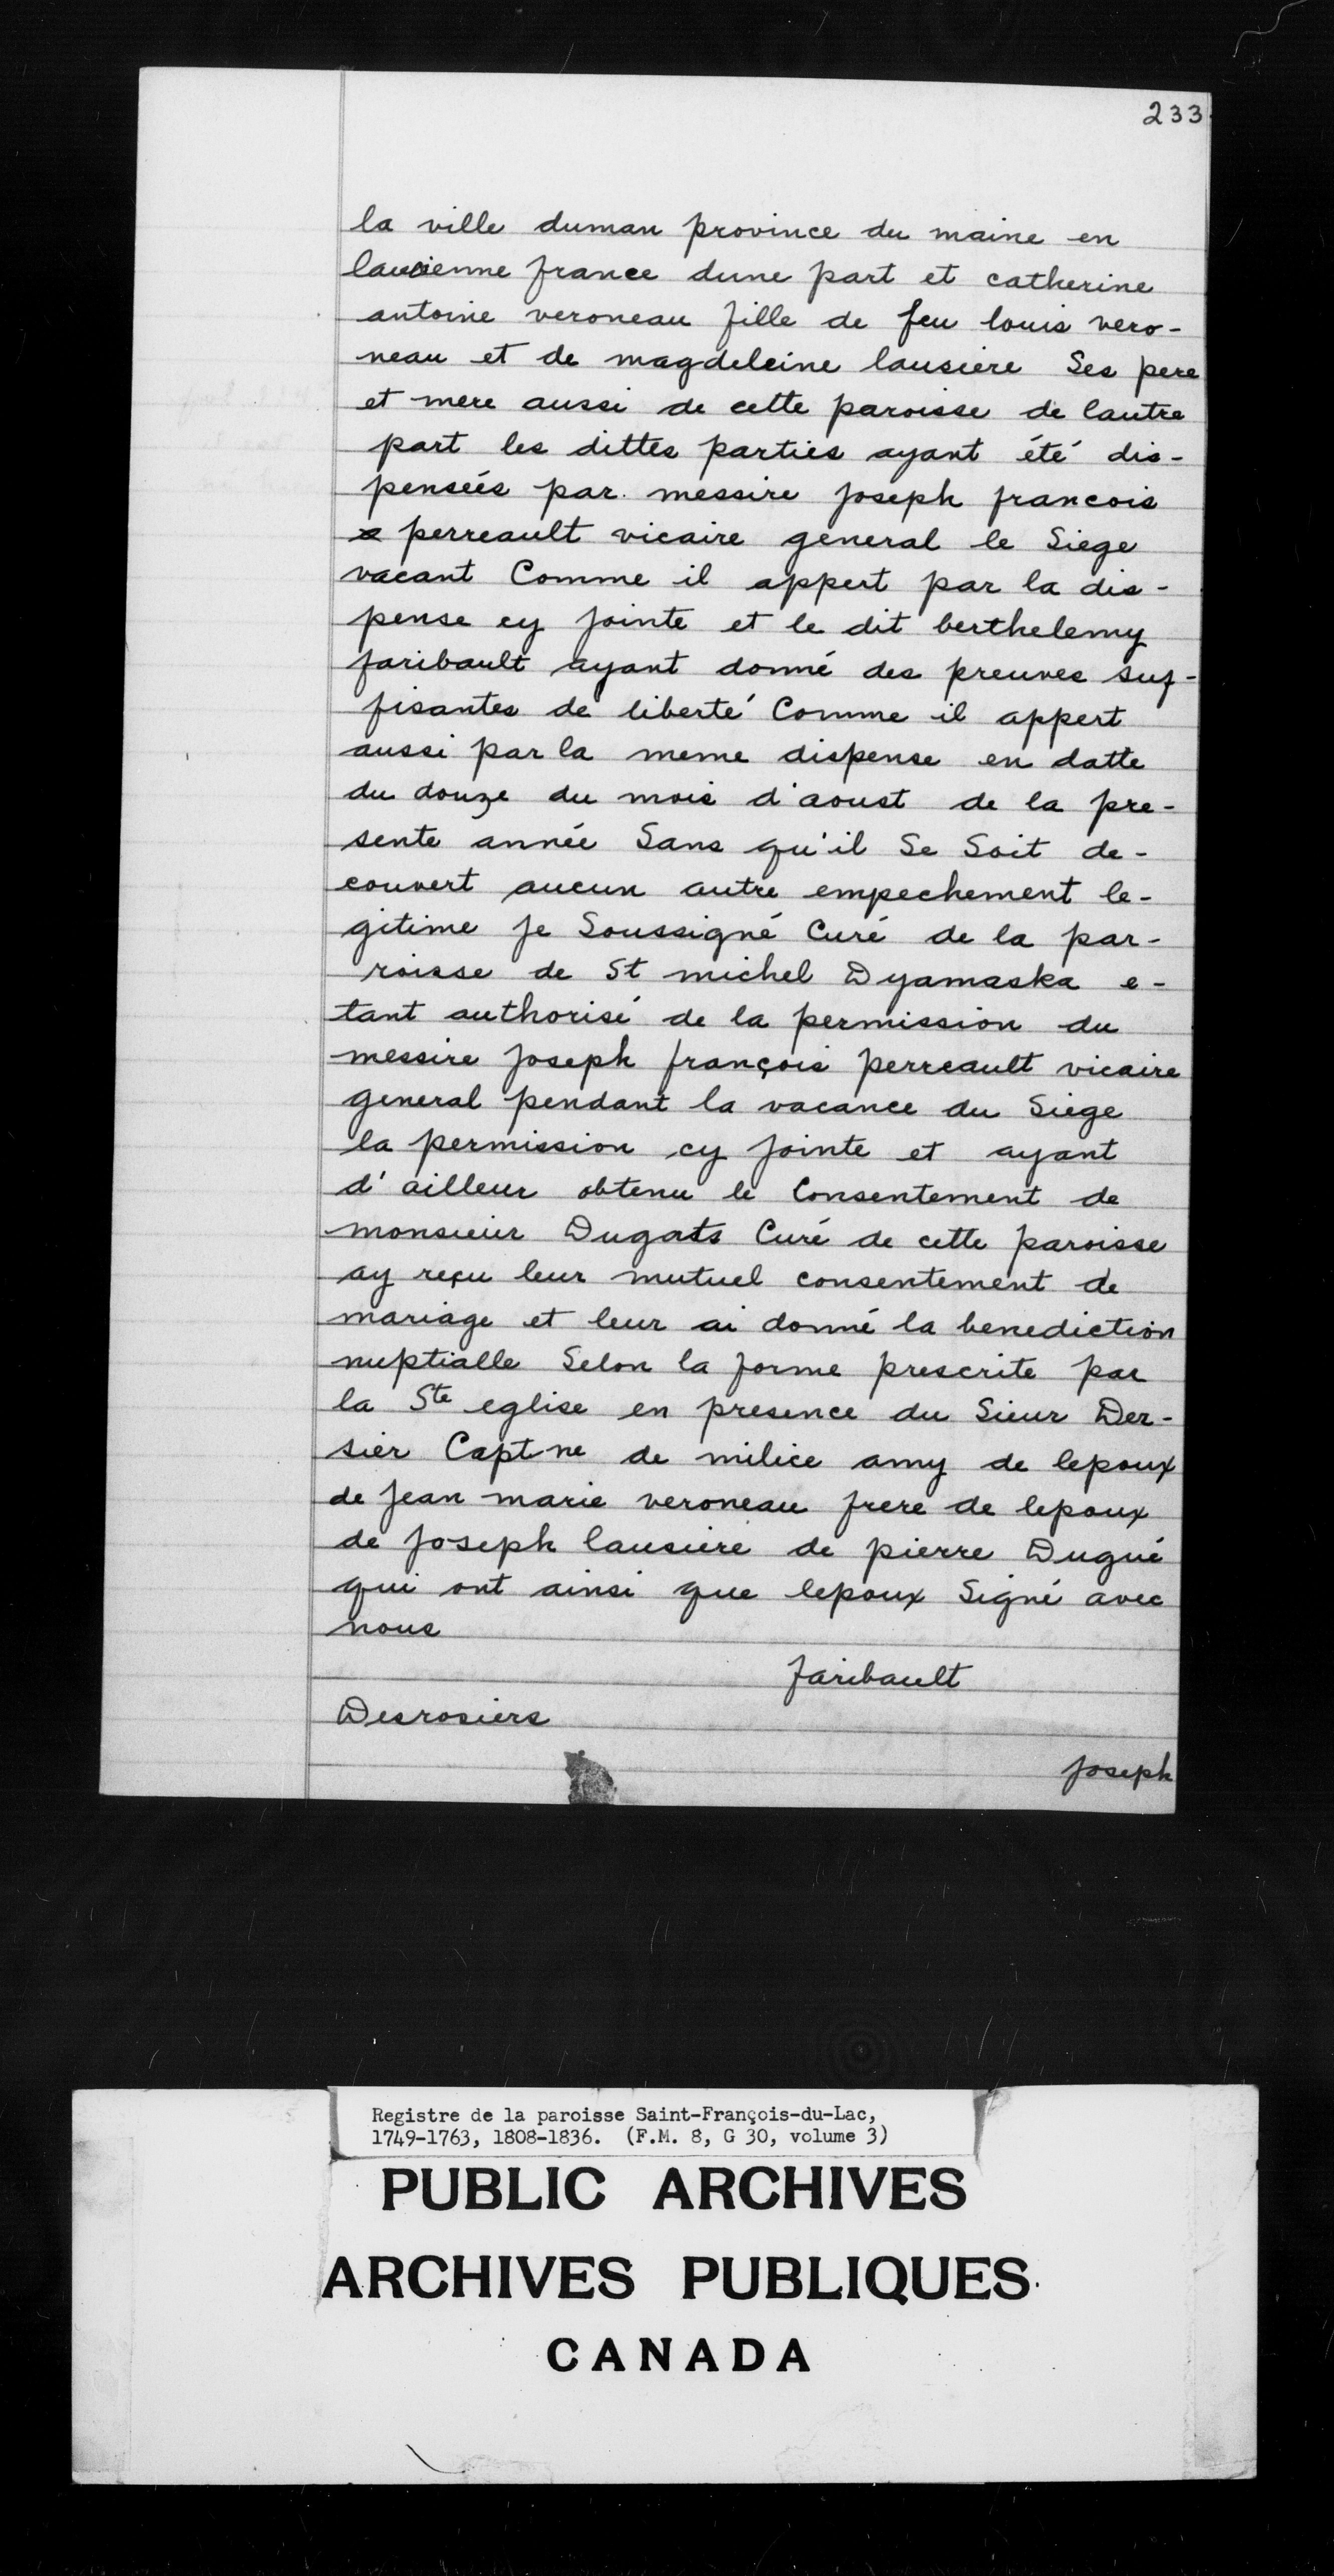 233
la ville duman province du maine en
lancienne france dune part et catherine
antoine veroneau fille de feu louis vero-
neau et de magdeleine lausiere Ses pere
et mere aussi de cette paroisse de lautre
part les dittes parties ayant été dis-
pensées par messire joseph francois
perreault vicaire general le Siege
vacant Comme il appert par la dis-
pense cy jointe et le dit berthelemy
faribault ayant donné des preuves suf-
fisantes de liberté Comme il appert
aussi par la meme dispense en datte
du douze du mois d'aoust de la pre-
sente année Sans qu'il Se Soit de-
couvert aucun autre empechement le-
gitime je Soussigné Curé de la par-
roisse de St michel Dyamaska e-
tant authorisé de la permission du
messire joseph françois perreault vicaire
general pendant la vacance du Siege
la permission cy jointe et ayant
d'ailleur obtenu le Consentement de
monsieur Dugats Curé de cette paroisse
ay reçu leur mutuel consentement de
mariage et leur ai donné la benediction
nuptialle Selon la forme prescrite par
la Ste eglise en presence du Sieur Der-
sier Capt-ne de milice amy de lepoux
de jean marie veroneau frere de lepoux
de joseph lausiere de pierre Dugué
qui ont ainsi que lepoux Signé avec
nous
faribault
Desrosiers
joseph
Registre de la paroisse Saint-François-du-Lac,
1749-1763, 1808-1836. (F.M. 8, G 30, volume 3)
PUBLIC ARCHIVES
ARCHIVES PUBLIQUES
CANADA